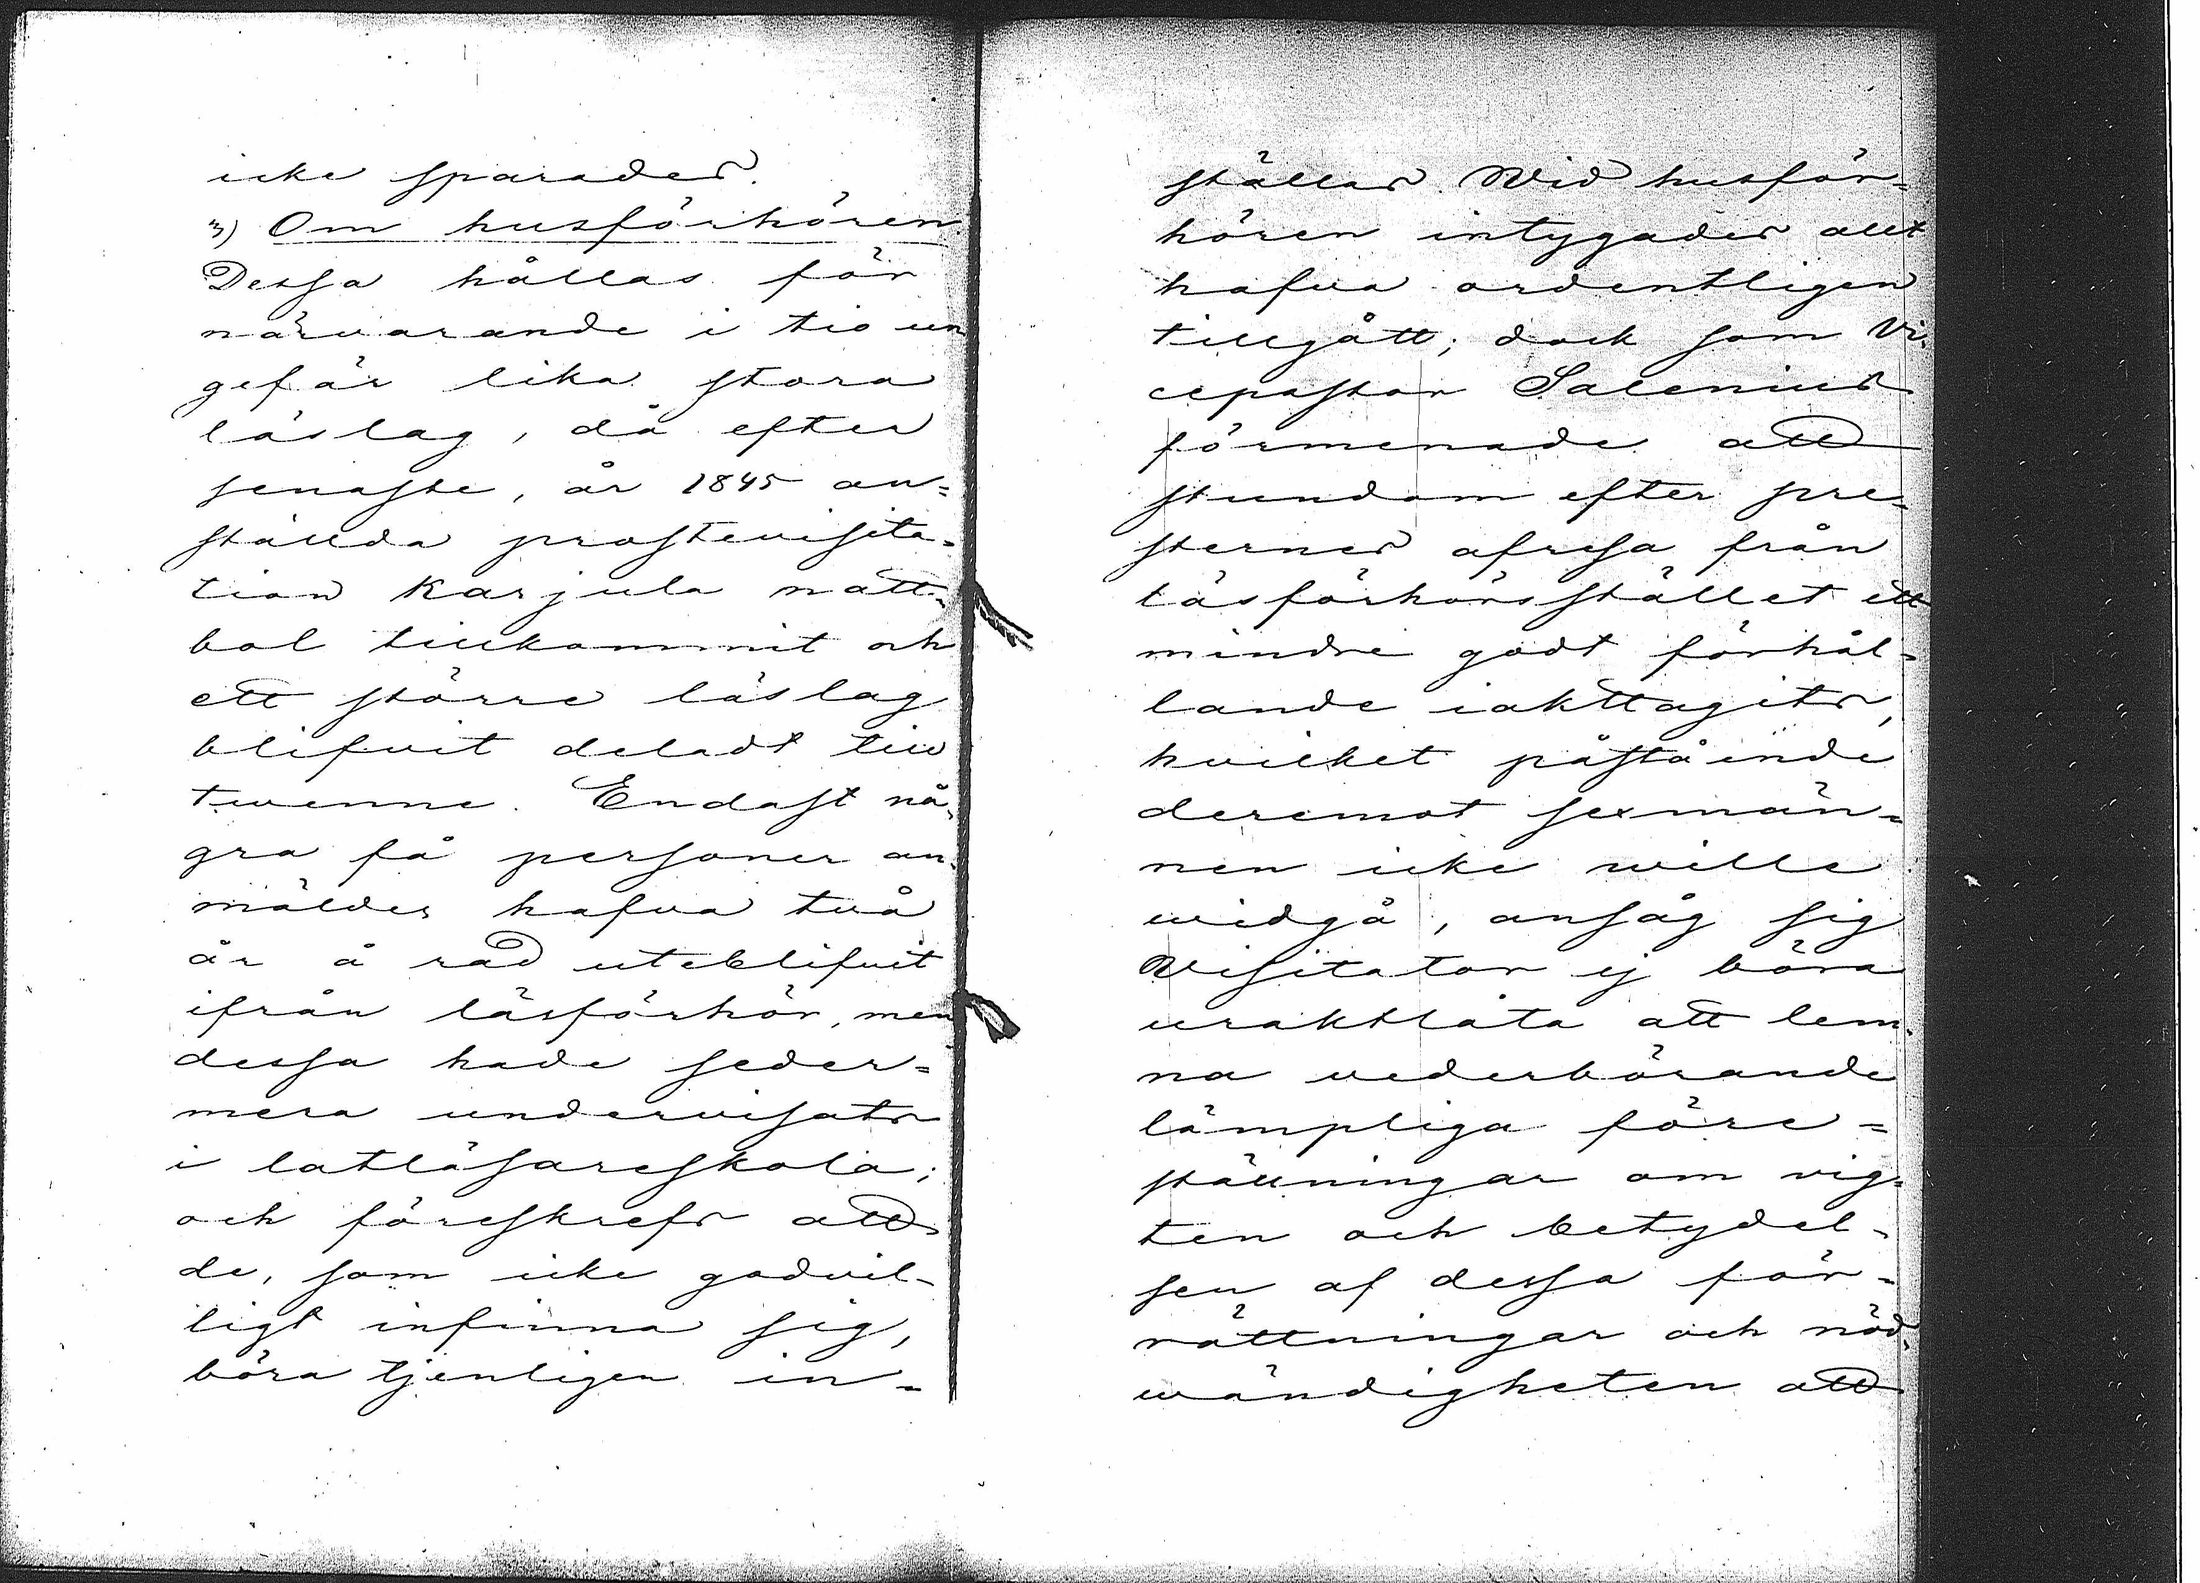 icke sparades.
3) Om husförhören.
Dessa hållas för
närvarande i tio un
gefär lika stora
läslag, då efter
senaste, år 1845 an=
ställda prostevisita=
tion Karjula natt=
bol tillkommit och
ett större läslag
blifvit deladt till
twenne. Endast nå=
gra få personer an=
mäldes hafva två
år å rad uteblifvit
ifrån läsförhör, men
dessa hade seder=
mera undervisats
i latläsareskola;
och föreskrefs att
de, som icke godvil=
ligt infinna sig,
böra tjenligen in=
ställas. Wid husför=
hören intygades allt
hafva ordentligen
tillgått; dock som Vi=
cepastor Salenius
förmenade att
stundom efter pre=
sternes afresa från
läsförhörsstället ett
mindre godt förhål=
lande iakttagits,
hvilket påstående
deremot sexmän=
nen icke wille
widgå, ansåg sig
Wisitator ej böra
uraktlåta att lem=
na vederbörande
lämpliga före=
ställningar om vig=
ten och betydel=
sen af dessa för=
rättningar och nöd=
wändigheten att